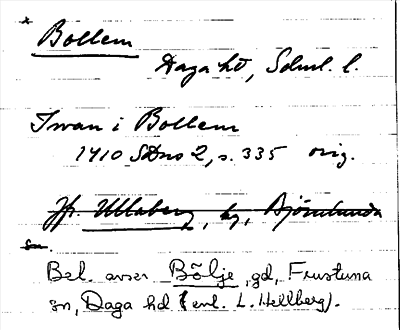 Bollem
Daga hd, Södml. l.
Iwan i Bollem
1410 SDns 2, s. 335 orig.
Jfr Ullaberg, by, Björnlunda
sn.
Bel. avser Bölje, gd, Frustuna
sn, Daga hd (enl. L. Hellberg).